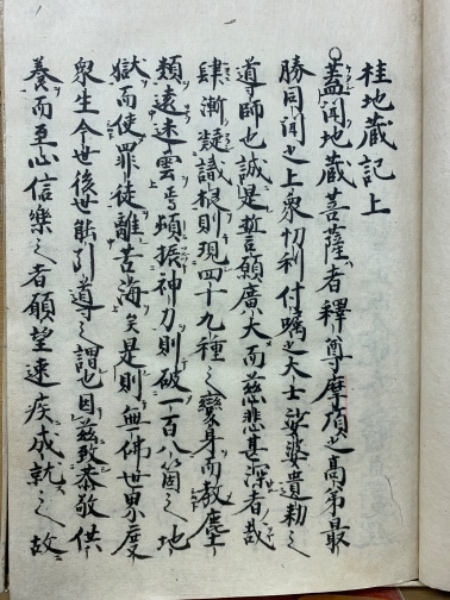 桂地蔵記上
蓋聞地蔵菩薩者釋尊摩頂之高弟最
勝同聞之上衆忉利付嘱之大士娑婆遺勅之
導師也誠是誓願廣大而慈悲甚深者哉
肆漸凝識根則現四十九種之變身而教塵
類遠迷雲焉頻振神力則破一百八箇之地
獄而使罪徒離苦海矣是則無佛世界度
衆生今世後世能引導之謂也因茲致恭敬供
養而至心信樂之者願望速疾成就之故